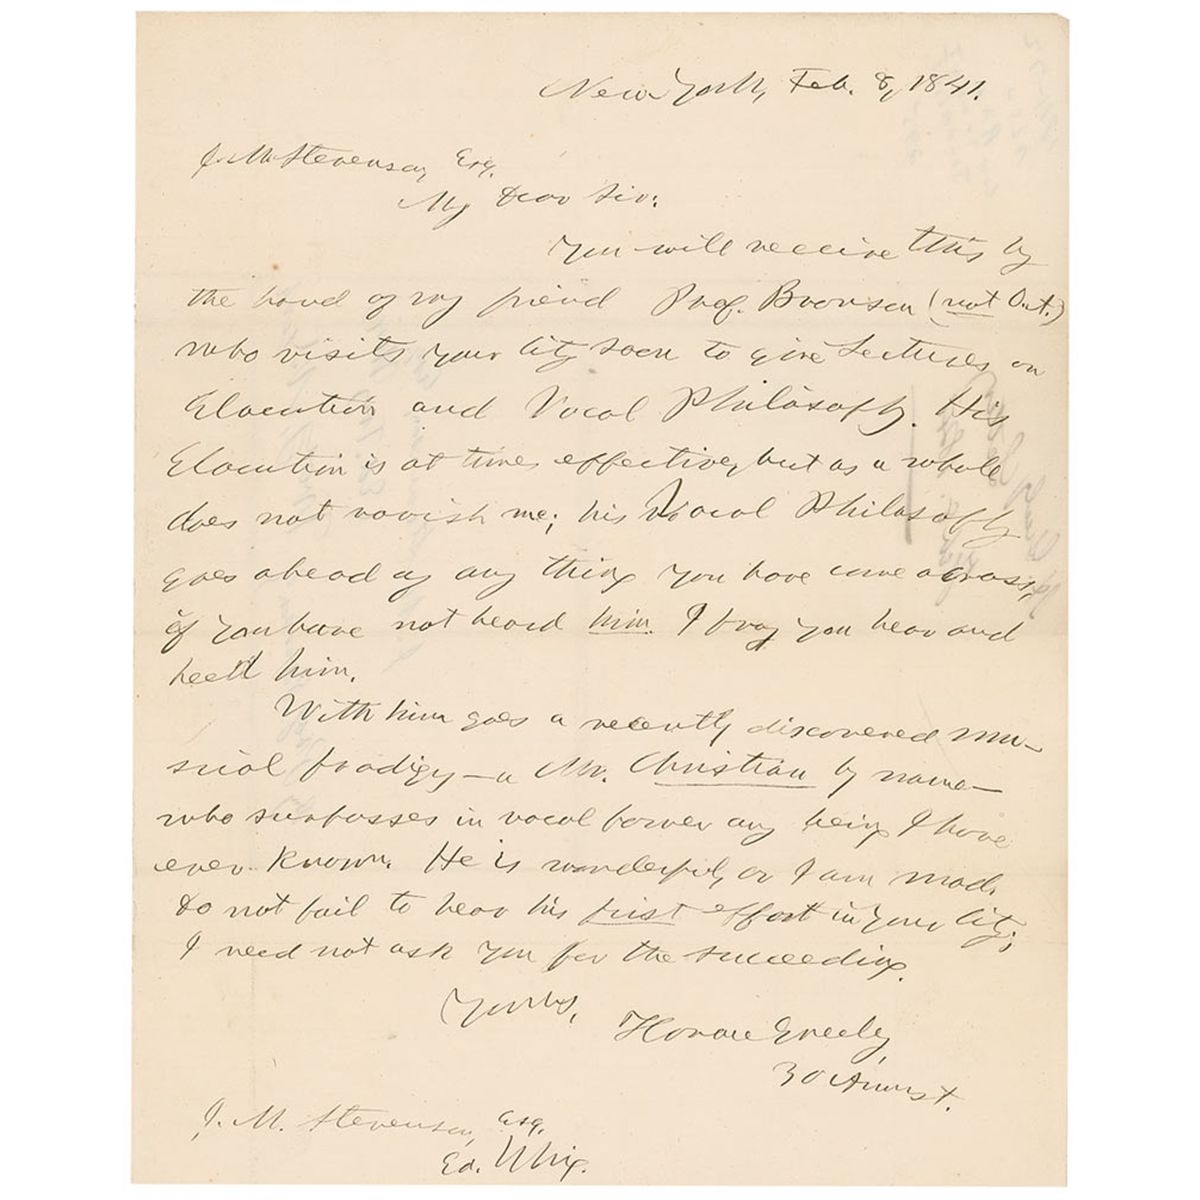 New York, Feb. 8, 1841.
J. M. Stevenson, Esq.
My Dear Sir:
You will receive this by
the hand of my friend Prof. Bronson (not Out.)
who visits your city soon to give Lectures on
Elocution and Vocal Philosophy. His
Elocution is at times effective, but as a whole
does not ravish me; his Vocal Philosophy
goes ahead of any thing you have come across,
if you have not heard him. I pray you hear and
heed him.
With him goes a recently discovered mu-
sical prodigy—a Mr. Christian by name—
who surpasses in vocal power any being I have
ever known. He is wonderful, or I am mad.
Do not fail to hear his first effort in your city;
I need not ask you for the succeeding.
Yours,
Horace Greeley,
30 Ann st.
J. M. Stevenson, Esq.
Ed. Whig.